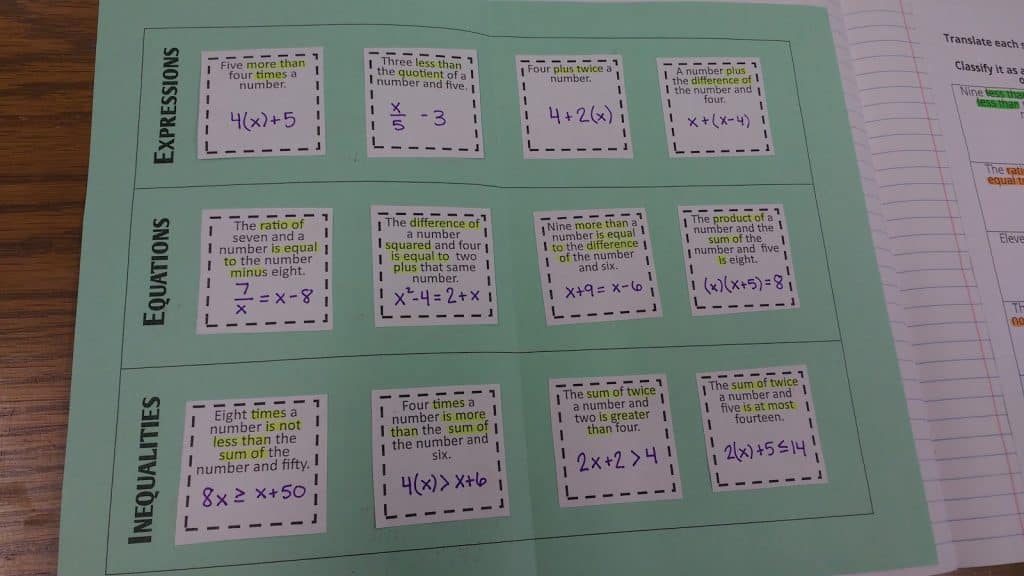 EXPRESSIONS
Five more than
four times a
number.
4(x)+5
Three less than
the quotient of a
number and five.
x/5 - 3
Four plus twice a
number.
4+2(x)
A number plus
the difference of
the number and
four.
x+(x-4)
EQUATIONS
The ratio of
seven and a
number is equal
to the number
minus eight.
7/x = x-8
The difference of
a number
squared and four
is equal to two
plus that same
number.
x²-4=2+x
Nine more than a
number is equal
to the difference
of the number
and six.
x+9= x-6
The product of a
number and the
sum of the
number and five
is eight.
(x)(x+5)=8
INEQUALITIES
Eight times a
number is not
less than the
sum of the
number and fifty.
8x ≥ x+50
Four times a
number is more
than the sum of
the number and
six.
4(x)> x+6
The sum of twice
a number and
two is greater
than four.
2x+2 >4
The sum of twice
a number and
five is at most
fourteen.
2(x)+5≤14
Translate each
Classify it as
Nine less than
less than
The
equal to